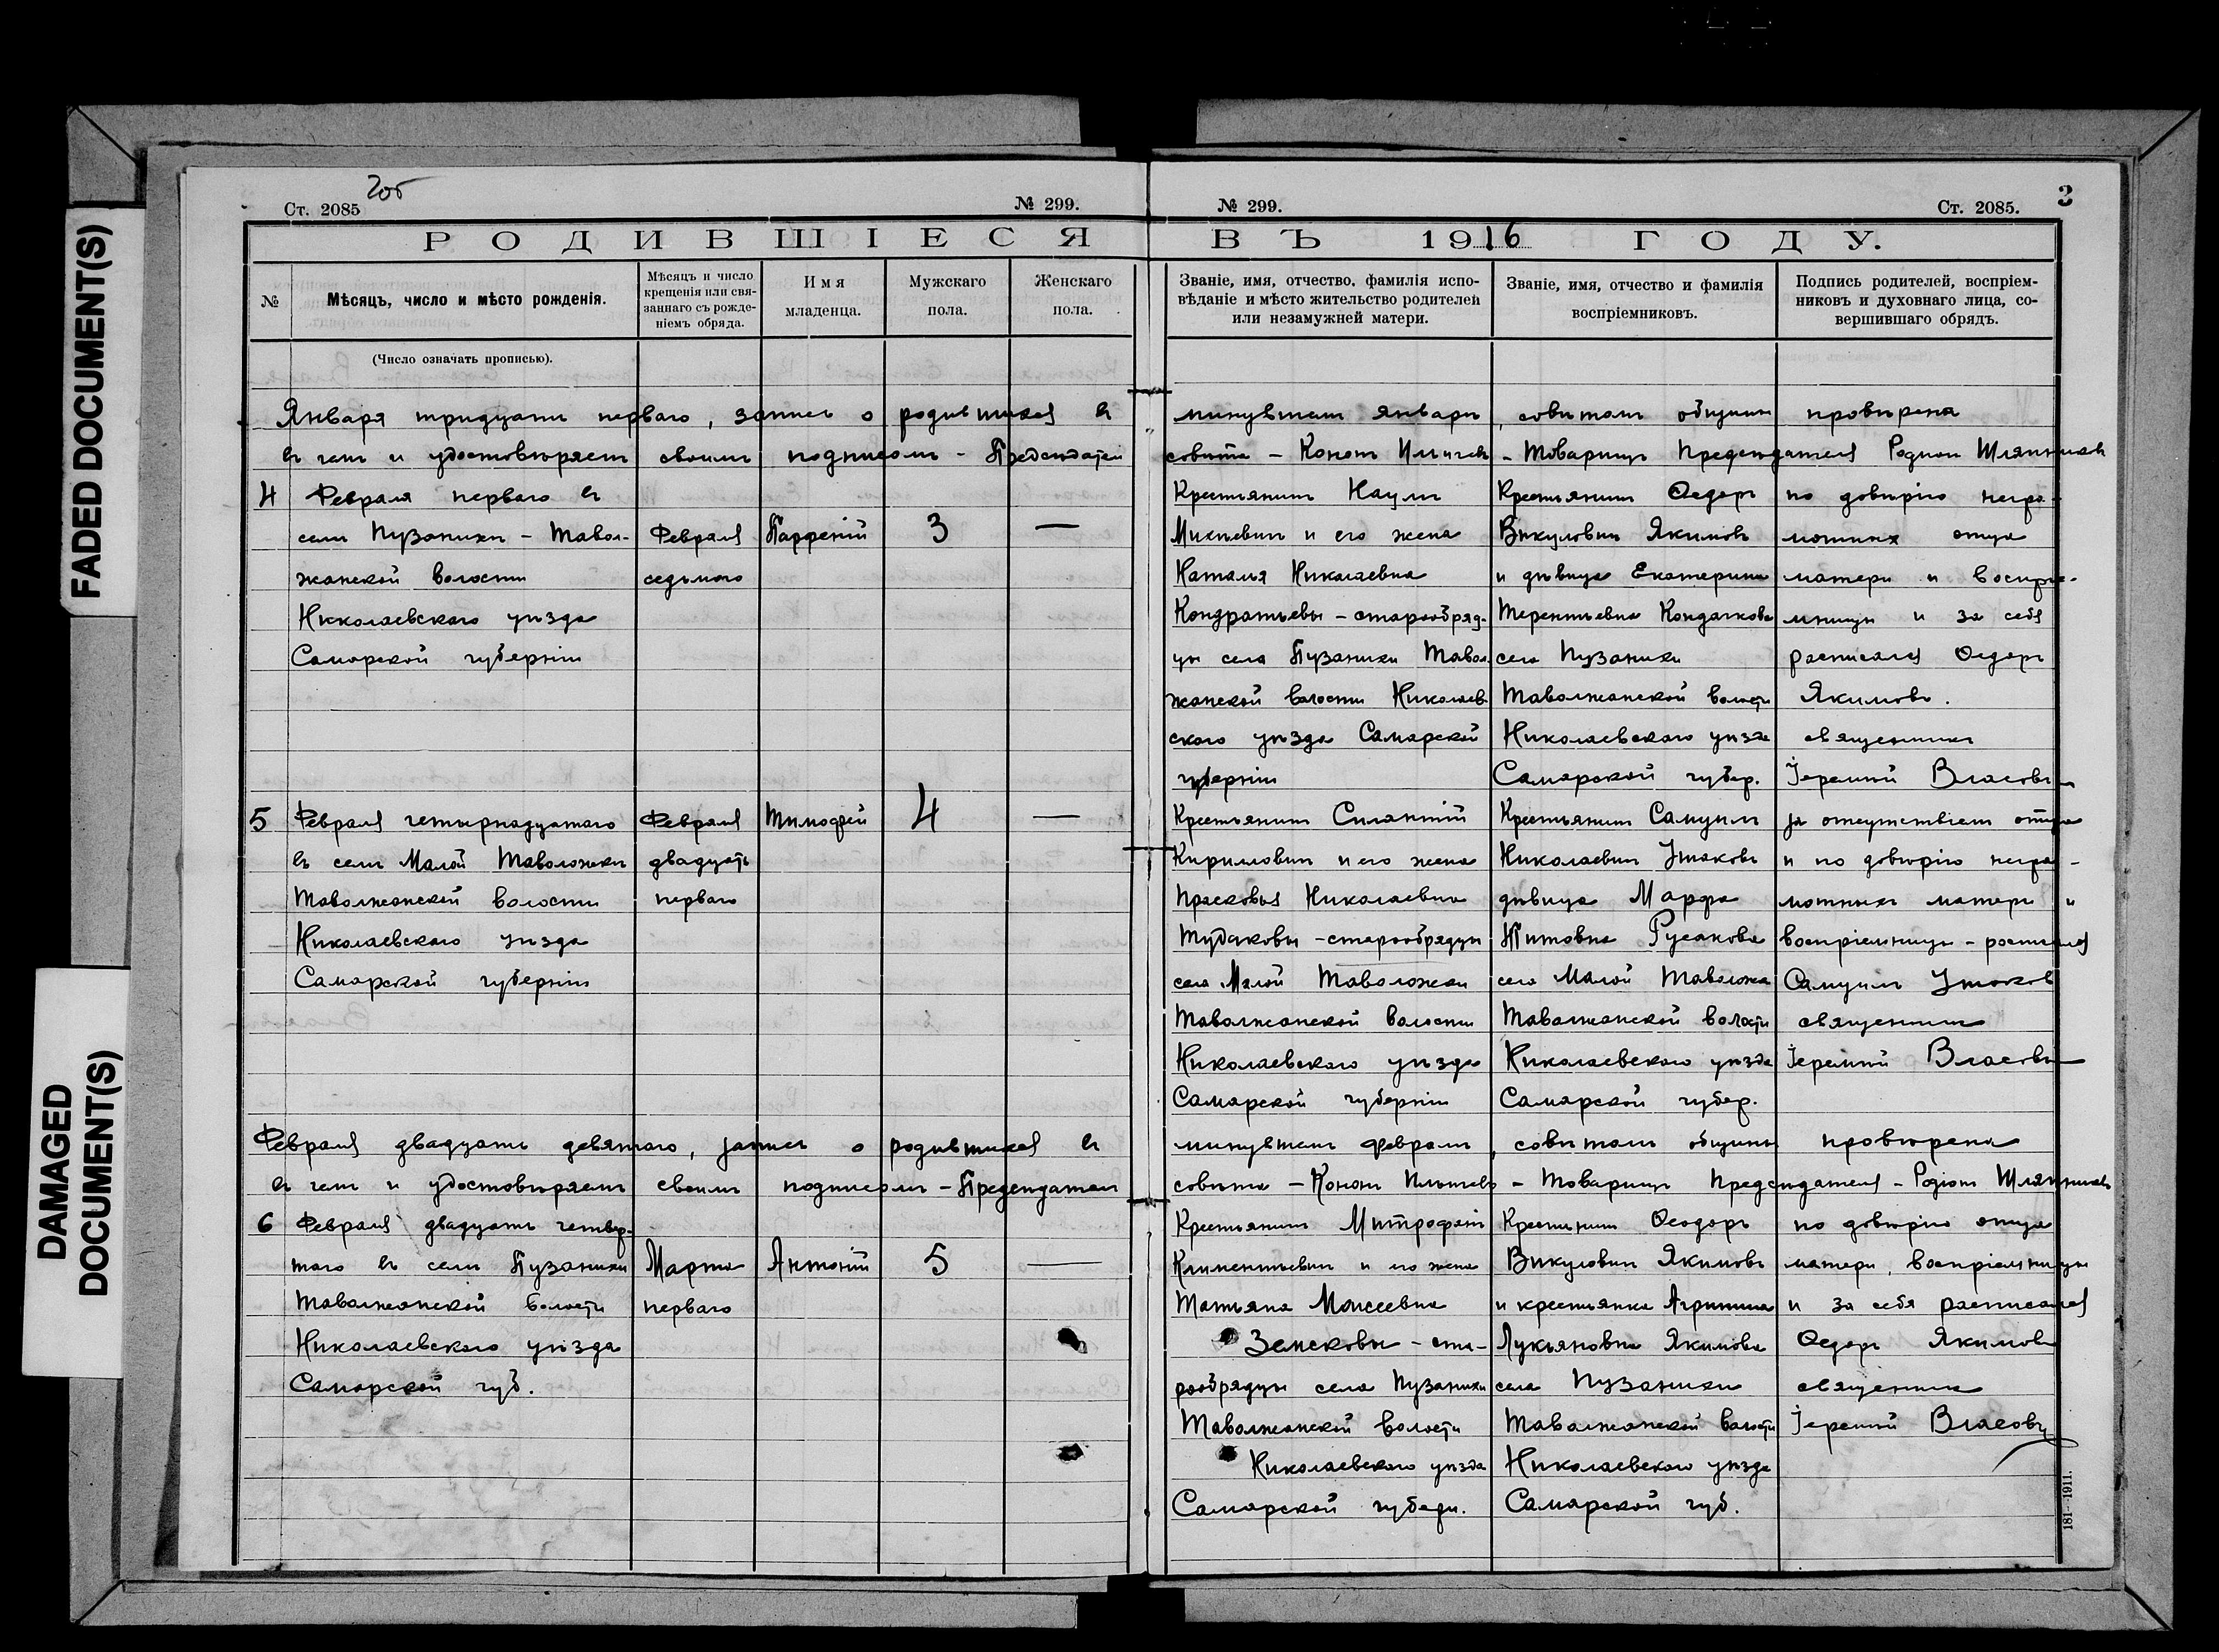 FADED DOCUMENT(S)
DAMAGED
DOCUMENT(S)
Ст. 2085
№ 299.
РОДИВШІЕСЯ
№
Мѣсяцъ, число и мѣсто рожденія.
Мѣсяцъ и число
крещенія или свя-
заннаго съ рожде-
ніемъ обряда.
Имя
младенца.
Мужскаго
пола.
Женскаго
пола.
(Число означать прописью).
№ 299.
Ст. 2085.
3
ВЪ 1916 ГОДУ.
Званіе, имя, отчество, фамилія испо-
вѣданіе и мѣсто жительство родителей
или незамужней матери.
Званіе, имя, отчество и фамилія
воспріемниковъ.
Подпись родителей, воспріем-
никовъ и духовнаго лица, со-
вершившаго обрядъ.
Января тридцать перваго, запись о родившихся въ минувшем январѣ, совѣтомъ общины провѣрена
въ чем и удостовѣряем своимъ подписомъ - Предсѣдатель совѣта - Конон - Товарищъ Предсѣдателя Родион
4
Февраля перваго въ
селѣ Пузанихи - Тавол-
жанской волости
Николаевского уѣзда
Самарской губерніи
Февраля
седьмого
Парфеній
3
—
Крестьянинъ Наумъ
Михѣевичъ и его жена
Наталья Николаевна
Кондратьевы - старообряд-
цы села Пузанихи Тавол-
жанской волости Николаев-
ского уѣзда Самарской
губерніи
Крестьянинъ Ѳедоръ
Викуловичъ Якимовъ
и дѣвица Екатерина
Терентьевна Кондачкова
села Пузанихи
Таволжанской волости
Николаевскаго уѣзда
Самарской губер.
по довѣрію негра-
мотных отца
матери и воспріе-
мницы и за себя
расписался Ѳедоръ
Якимовъ.
священникъ
Іеремій Власовъ
5
Февраля четырнадцатаго
въ селѣ Малой Таволожки
Таволжанской волости
Николаевскаго уѣзда
Самарской губерніи
Февраля
двадцать
перваго
Тимофей
4
—
Крестьянинъ Силантій
Кирилловичъ и его жена
Прасковья Николаевна
Тудаковы - старообрядцы
села Малой Таволожки
Таволжанской волости
Николаевскаго уѣзда
Самарской губерніи
Крестьянинъ Самуилъ
Николаевичъ Ушаковъ
дѣвица Марфа
Титовна Русакова
села Малой Таволожки
Таволжанской волости
Николаевскаго уѣзда
Самарской губер.
за отсутствіем отца
и по довѣрію негра-
мотныхъ матери и
воспріемницы - росписался
Самуилъ Ушаковъ
священникъ
Іеремій Власовъ
Февраля двадцать девятаго, запись о родившихся въ минувшемъ февралѣ, совѣтомъ общины провѣрена
въ чем и удостовѣряем своимъ подписомъ - Предсѣдатель совѣта - Конон - Товарищъ Предсѣдателя - Родіон
6
Февраля двадцать четвер-
таго въ селѣ Пузанихи
Таволжанской волости
Николаевскаго уѣзда
Самарской губ.
Марта
перваго
Антоній
5
—
Крестьянинъ Митрофанъ
Климентьевич и его жена
Татьяна Моисеевна
Земсковы - ста-
рообрядцы села Пузанихи
Таволжанской волости
Николаевскаго уѣзда
Самарской губерн.
Крестьянинъ Ѳеодоръ
Викуловичъ Якимовъ
и крестьянка Агрипина
Лукьяновна Якимова
села Пузанихи
Таволжанской волости
Николаевскаго уѣзда
Самарской губ.
по довѣрію отца
матери, воспріемницы
и за себя расписался
Ѳедоръ Якимовъ
священникъ
Іеремій Власовъ
181—1911.